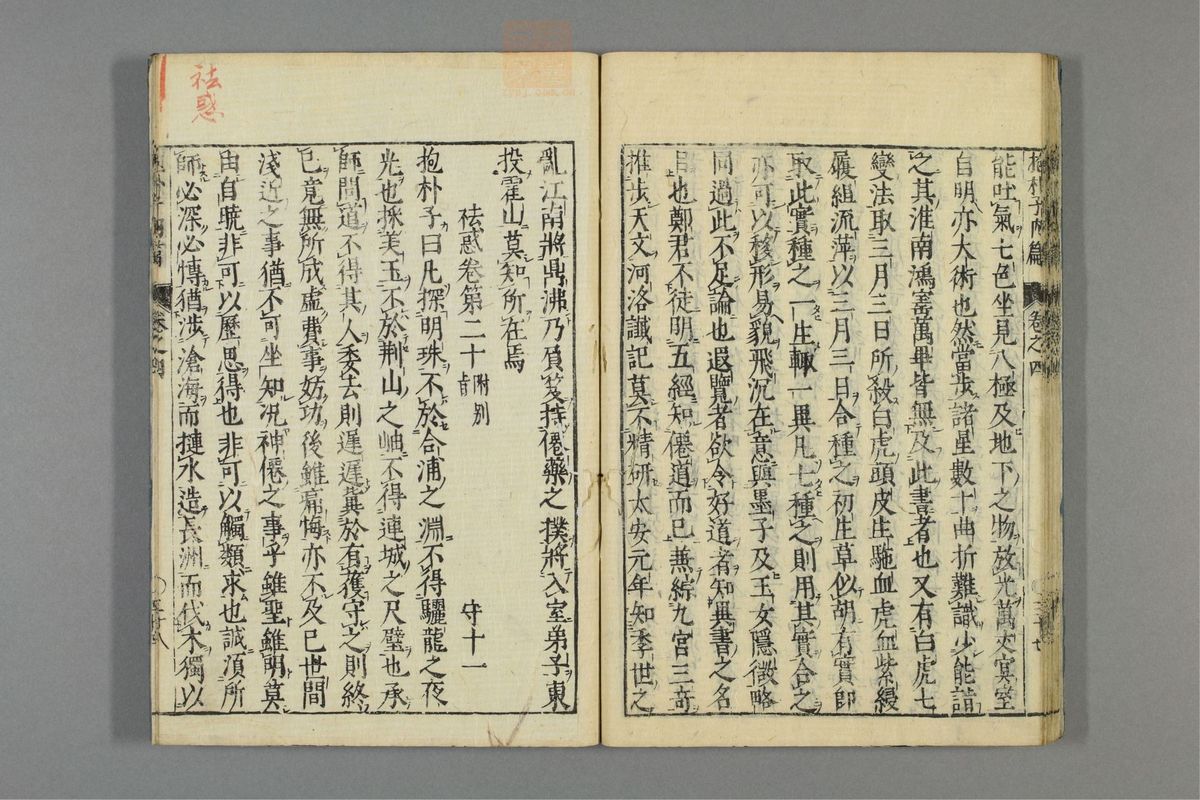 抱朴子内篇 卷之四
能吐氣七色坐見八極及地下之物放光萬丈冥室
自明亦大術也然當步諸星數十曲折難識少能譜
之其淮南鴻寳萬畢皆無及此書者也又有白虎七
變法取三月三日所殺白虎頭皮生駞血虎血紫綬
履組流萍以三月三日合種之初生草似胡有實即
取此實種之一生輒一異凡七種之則用其實合之
亦可以移形易貌飛沉在意與墨子及玉女隱微略
同過此不足論也遐覽者欲令好道者知異書之名
目也鄭君不徒明五經知僊道而已兼綜九宮三竒
推步天文河洛讖記莫不精研太安元年知季世之
亂江南將鼎沸乃負笈持僊藥之撲將入室弟子東
投霍山莫知所在焉
祛惑卷第二十 附别旨 守十一
抱朴子曰凡探明珠不於合浦之淵不得驪龍之夜
光也採美玉不於荆山之岫不得連城之尺璧也承
師問道不得其人委去則遲遲冀於有獲守之則終
已竟無所成虚費事妨功後雖痛悔亦不及已世間
淺近之事猶不可坐知况神僊之事乎雖聖雖明莫
由自曉非可以歷思得也非可以觸類求也誠須所
師必深必博猶涉滄海而揵水造長洲而伐木獨以
祛惑